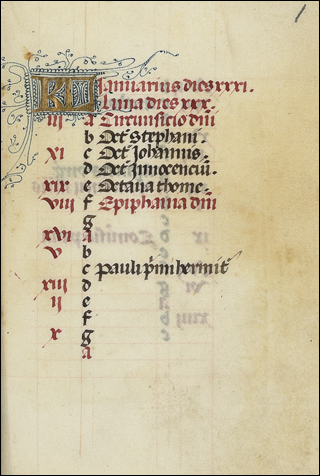 1
KL Januarius dies xxxi.
Luna dies xxx.
iii a Circumsicio dni
b Oct Stephani.
xi c Oct Johannis.
d Oct Innocenciu.
xix e Octaua thome.
viii f Epiphania dni
g
xvi a
v b
c Pauli pmi hermit
xiii d
ii e
f
x g
a